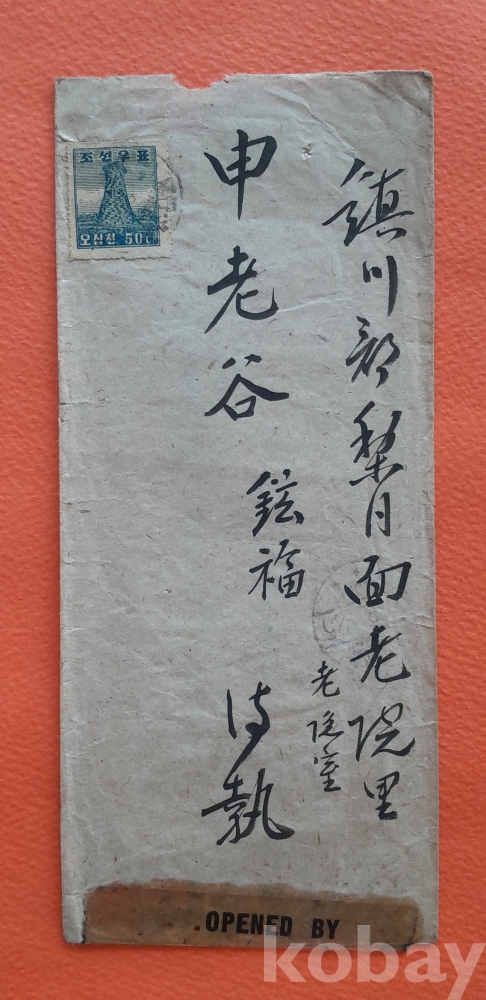 조선우표
오십전 50C
鎭川郡梨月面老院里
老
申老谷
鉉福
侍執
.OPENED BY
kobay